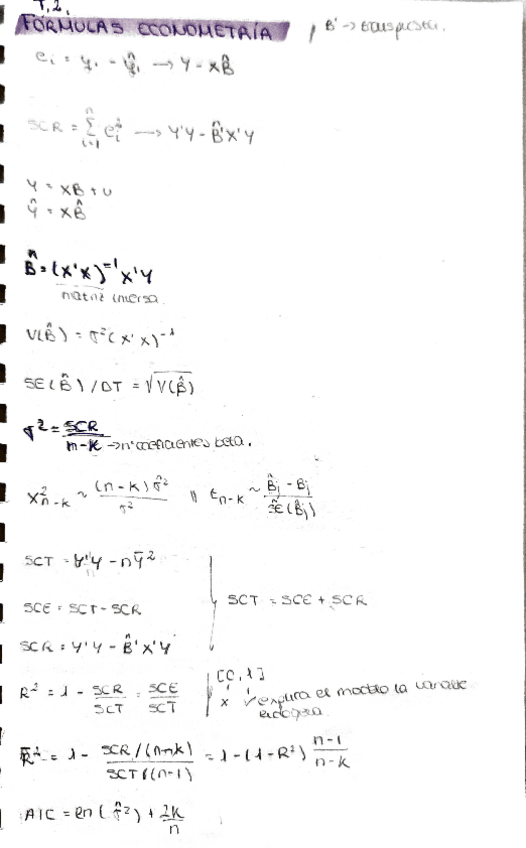 T.2.
FÓRMULAS ECONOMETRÍA , B' → traspuesta.
ei = yi - ŷi → Y - XB̂
SCR = Σ(i=1, n) ei² → Y'Y - B̂'X'Y
Y = XB + U
Ŷ = XB̂
B̂ = (X'X)⁻¹X'Y
matriz inversa
V(B̂) = σ²(X'X)⁻¹
SE(B̂) / DT = √V(B̂)
σ² = SCR / n-k → nº coeficientes beta.
X²n-k ~ (n-k)σ̂² / σ² || tn-k ~ B̂j - Bj / ŜE(B̂j)
SCT = Y'Y - nȲ²
SCE = SCT - SCR
SCT = SCE + SCR
SCR = Y'Y - B̂'X'Y
R² = 1 - SCR/SCT = SCE/SCT
[0, 1]
x ✓ explica el modelo la variable
endógena
R̄² = 1 - SCR/(n-k) / SCT/(n-1) = 1 - (1-R²) n-1 / n-k
AIC = ln(σ̂²) + 2k/n